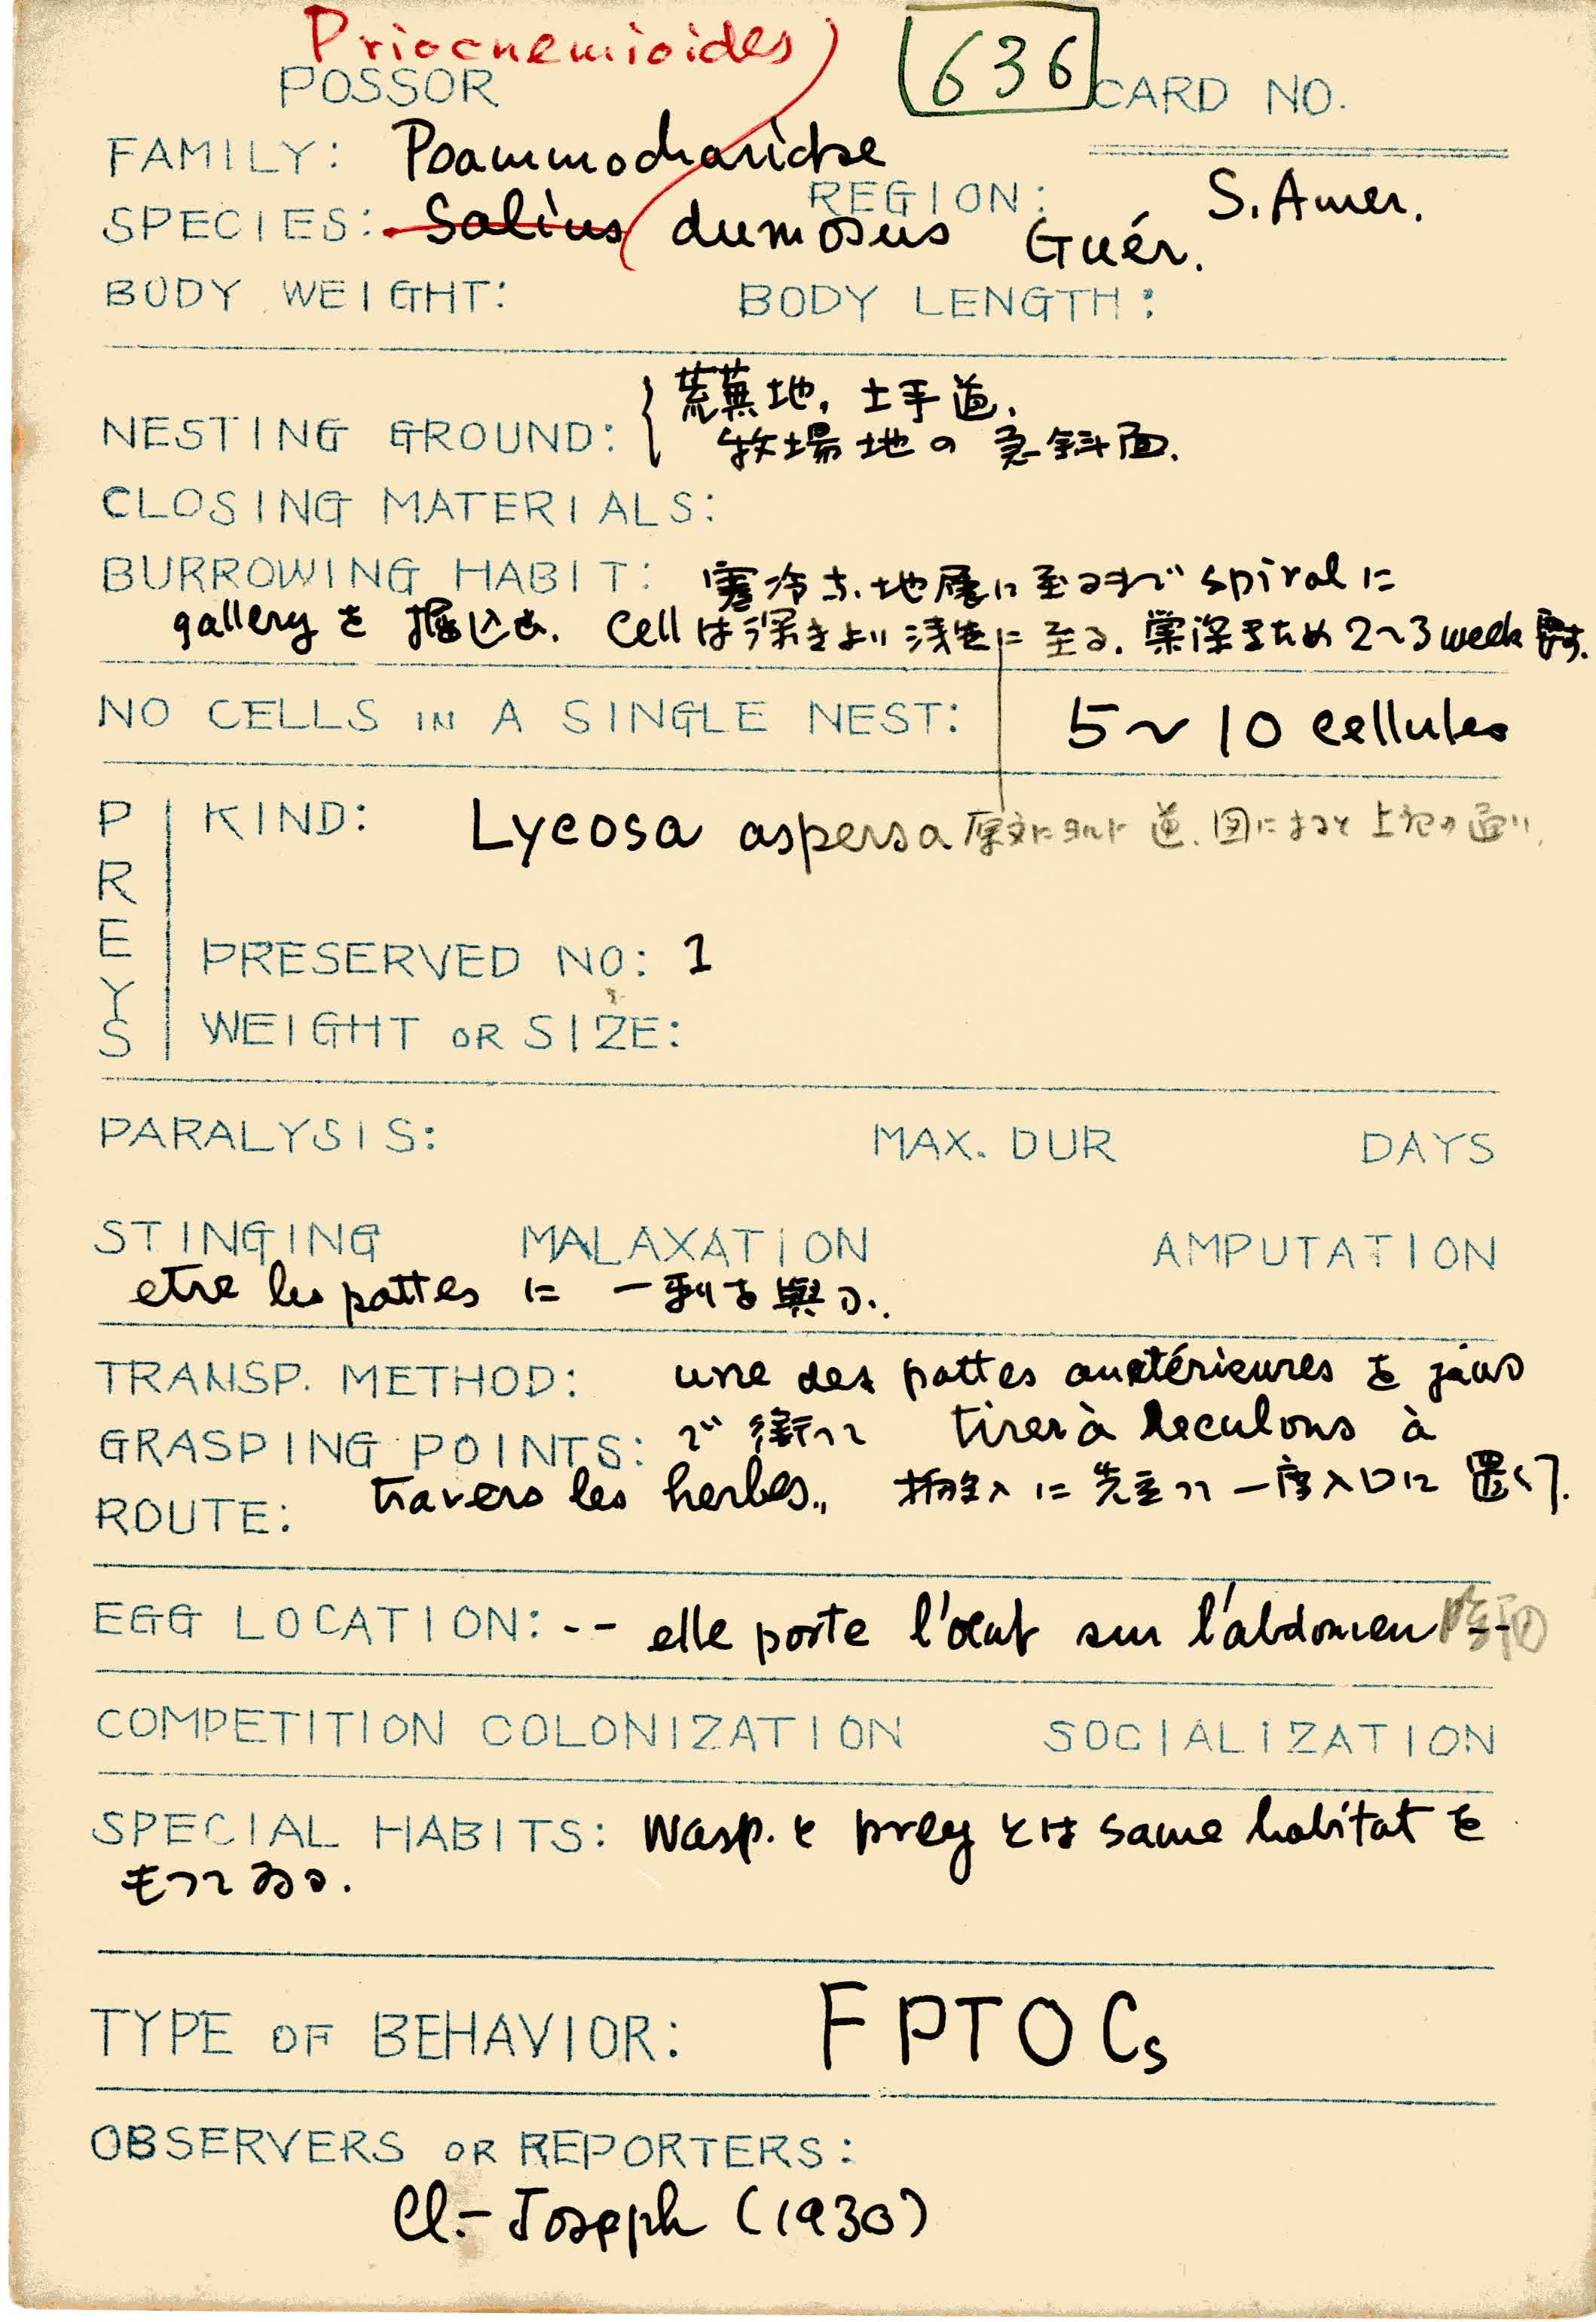 Priocnemioides
636
POSSOR CARD NO.
FAMILY: Psammocharidae
REGION: S. Amer.
SPECIES: Salius dumosus Guér.
BODY WEIGHT: BODY LENGTH:
荒蕪地, 土手道,
NESTING GROUND: 牧場地の急斜面.
CLOSING MATERIALS:
BURROWING HABIT: 寒冷な地層に至るまで spiral に
gallery を掘込む. Cell は深きより浅きに至る. 2~3 week 要す.
NO CELLS IN A SINGLE NEST: 5~10 cellules
PREYS
KIND: Lycosa aspersa 原文に 逆. 図によると上記の通り.
PRESERVED NO: 1
WEIGHT OR SIZE:
PARALYSIS: MAX. DUR DAYS
STINGING MALAXATION AMPUTATION
etre les pattes に 一刺を與ふ.
TRANSP. METHOD: une des pattes antérieures を jaws
GRASPING POINTS: で銜って tirer à reculons à
ROUTE: travers les herbes., 搬入に先立って一度入口に置く.
EGG LOCATION: -- elle porte l'œuf sur l'abdomen --
COMPETITION COLONIZATION SOCIALIZATION
SPECIAL HABITS: Wasp. と prey とは same habitat を
もってゐる.
TYPE OF BEHAVIOR: FPTOCs
OBSERVERS OR REPORTERS:
Cl.-Joseph (1930)